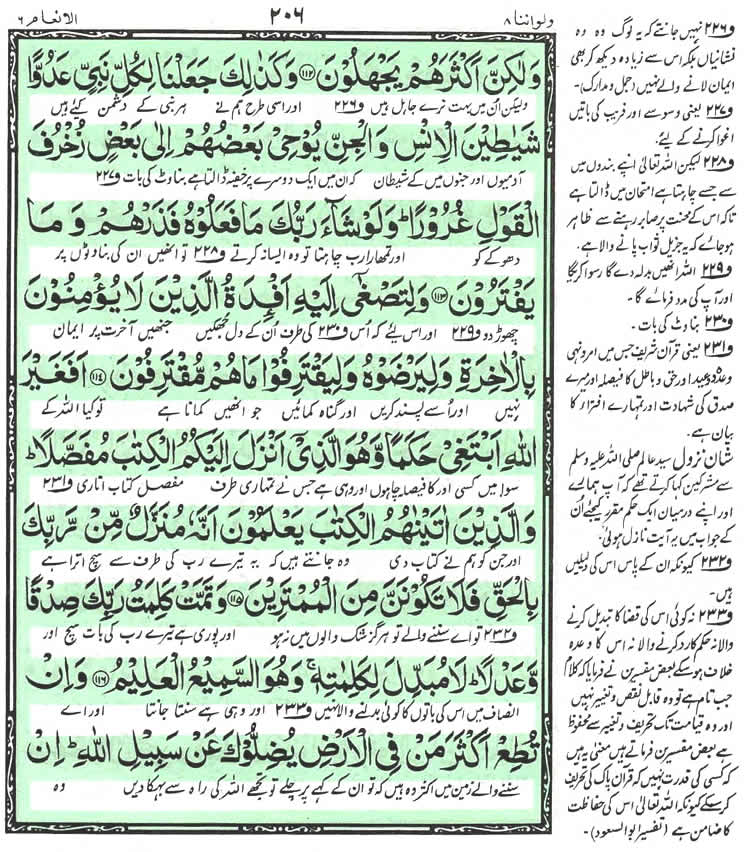 ولواننا ٨
٢٠٦
الانعام ٦
وَلٰكِنَّ اَكْثَرَهُمْ يَجْهَلُوْنَ ﴿١١٢﴾ وَكَذٰلِكَ جَعَلْنَا لِكُلِّ نَبِيٍّ عَدُوًّا
ولیکن اُن میں بہت نرے جاہل ہیں ف۲۲۶ اور اسی طرح ہم نے ہر نبی کے دشمن کئے ہیں
شَيٰطِيْنَ الْاِنْسِ وَالْجِنِّ يُوْحِيْ بَعْضُهُمْ اِلٰى بَعْضٍ زُخْرُفَ
آدمیوں اور جنوں میں کے شیطان کہ ان میں ایک دوسرے پر خفیہ ڈالتا ہے بناوٹ کی بات ف۲۲۷
الْقَوْلِ غُرُوْرًا ؕ وَلَوْ شَآءَ رَبُّكَ مَا فَعَلُوْهُ فَذَرْهُمْ وَمَا
دھوکے کو اور تمہارا رب چاہتا تو وہ ایسا نہ کرتے ف۲۲۸ تو انھیں ان کی بناوٹوں پر
يَفْتَرُوْنَ ﴿١١٣﴾ وَلِتَصْغٰٓى اِلَيْهِ اَفْـِٕدَةُ الَّذِيْنَ لَا يُؤْمِنُوْنَ
چھوڑ دو ف۲۲۹ اور اس لیے کہ اُس ف۲۳۰ کی طرف اُن کے دل جھکیں جنھیں آخرت پر ایمان
بِالْاٰخِرَةِ وَلِيَرْضَوْهُ وَلِيَقْتَرِفُوْا مَا هُمْ مُّقْتَرِفُوْنَ ﴿١١٤﴾ اَفَغَيْرَ
نہیں اور اُسے پسند کریں اور گناہ کمائیں جو انھیں کمانا ہے تو کیا اللہ کے
اللّٰهِ اَبْتَغِيْ حَكَمًا وَّهُوَ الَّذِيْٓ اَنْزَلَ اِلَيْكُمُ الْكِتٰبَ مُفَصَّلًا ؕ
سوا میں کسی اور کا فیصلہ چاہوں اور وہی ہے جس نے تمہاری طرف مفصل کتاب اتاری ف۲۳۱
وَالَّذِيْنَ اٰتَيْنٰهُمُ الْكِتٰبَ يَعْلَمُوْنَ اَنَّهٗ مُنَزَّلٌ مِّنْ رَّبِّكَ
اور جن کو ہم نے کتاب دی وہ جانتے ہیں کہ یہ تیرے رب کی طرف سے سچ اترا ہے
بِالْحَقِّ فَلَا تَكُوْنَنَّ مِنَ الْمُمْتَرِيْنَ ﴿١١٥﴾ وَتَمَّتْ كَلِمَتُ رَبِّكَ صِدْقًا
ف۲۳۲ تو اے سننے والے تو ہرگز شک والوں میں نہ ہو اور پوری ہے تیرے رب کی بات سچ اور
وَّعَدْلًا ؕ لَا مُبَدِّلَ لِكَلِمٰتِهٖ ۚ وَهُوَ السَّمِيْعُ الْعَلِيْمُ ﴿١١٦﴾ وَاِنْ
انصاف میں اس کی باتوں کا کوئی بدلنے والا نہیں ف۲۳۳ اور وہی ہے سنتا جانتا اور اے
تُطِعْ اَكْثَرَ مَنْ فِي الْاَرْضِ يُضِلُّوْكَ عَنْ سَبِيْلِ اللّٰهِ ؕ اِنْ
سننے والے زمین میں اکثر وہ ہیں کہ تو ان کے کہے پر چلے تو تجھے اللہ کی راہ سے بہکا دیں وہ
ف۲۲۶ نہیں جانتے کہ یہ لوگ وہ وہ
نشانیاں بلکہ اس سے زیادہ دیکھ کر بھی
ایمان لانے والے نہیں (جمل و مدارک)۔
ف۲۲۷ یعنی وسوسے اور فریب کی باتیں
اغوا کرنے کے لیے۔
ف۲۲۸ لیکن اللہ تعالیٰ اپنے بندوں میں
سے جسے چاہتا ہے امتحان میں ڈالتا ہے
تاکہ اس کے محنت پر صابر رہنے سے ظاہر
ہو جائے کہ یہ جزیل ثواب پانے والا ہے۔
ف۲۲۹ اللہ انھیں بدلہ دے گا رسوا کریگا
اور آپ کی مدد فرمائے گا۔
ف۲۳۰ بناوٹ کی بات۔
ف۲۳۱ یعنی قرآن شریف جس میں امر و نہی
وعدہ وعید اور حق و باطل کا فیصلہ اور میرے
صدق کی شہادت اور تمہارے افترا کا
بیان ہے۔
شان نزول سید عالم صلی اللہ علیہ وسلم
سے مشرکین کہا کرتے تھے کہ آپ ہمارے
اور اپنے درمیان ایک حکم مقرر کیجئے اُن
کے جواب میں یہ آیت نازل ہوئی۔
ف۲۳۲ کیونکہ ان کے پاس اس کی دلیلیں
ہیں۔
ف۲۳۳ نہ کوئی اس کی قضا کا تبدیل کرنے
والا نہ حکم کا رد کرنے والا نہ اس کا وعدہ
خلاف ہو سکے بعض مفسرین نے فرمایا کہ کلام
جب تام ہے تو وہ قابل نقص و تغییر نہیں
اور وہ قیامت تک تحریف و تغییر سے محفوظ
ہے بعض مفسرین فرماتے ہیں معنی یہ ہیں
کہ کسی کی قدرت نہیں کہ قرآن پاک کی تحریف
کر سکے کیونکہ اللہ تعالیٰ اس کی حفاظت
کا ضامن ہے (تفسیر ابوالسعود)۔